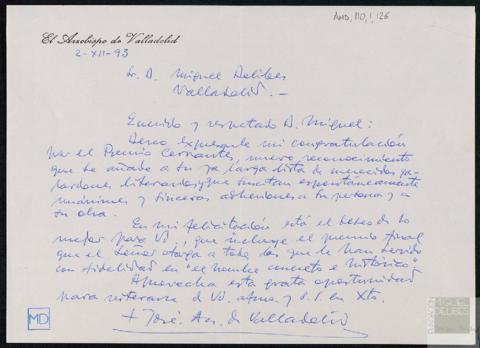 AMD, 110, 1, 126
El Arzobispo de Valladolid
2-XII-93
Sr. D. Miguel Delibes
Valladolid.-
Querido y respetado D. Miguel:
Deseo expresarle mi congratulación
por el Premio Cervantes, nuevo reconocimiento
que se añade a su ya larga lista de merecidos ga-
lardones literarios, y que suscitan espontáneamente
unánimes y sinceras adhesiones a su persona y a
su obra.
En mi felicitación está el deseo de lo
mejor para Vd., que incluye el premio final
que el Señor otorga a todos los que le han servido
con fidelidad en "el hombre concreto e histórico".
Aprovecho esta grata oportunidad
para reiterarme de Vd. afmo. y s.s. en Xto.
+ José, Arz. de Valladolid
MD
MIGUEL
DELIBES